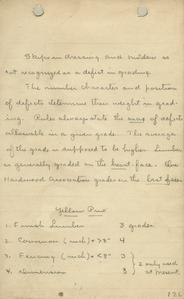 Skips in dressing and mildew is
not recognized as a defect in grading.
The number character and position
of defects determine their weight in grad-
ing. Rules always state the max of defects
allowable in a given grade. The average
of the grade is supposed to be higher. Lumber
is generally graded on the best face.
Hardwood Association grades on the
Yellow Pine
1. Finish Lumber 3 grades
2. Common (inch) + >8" 4
3. Fency (inch) + <8" 3 } 2 only used
4. Dimension 3 } at present